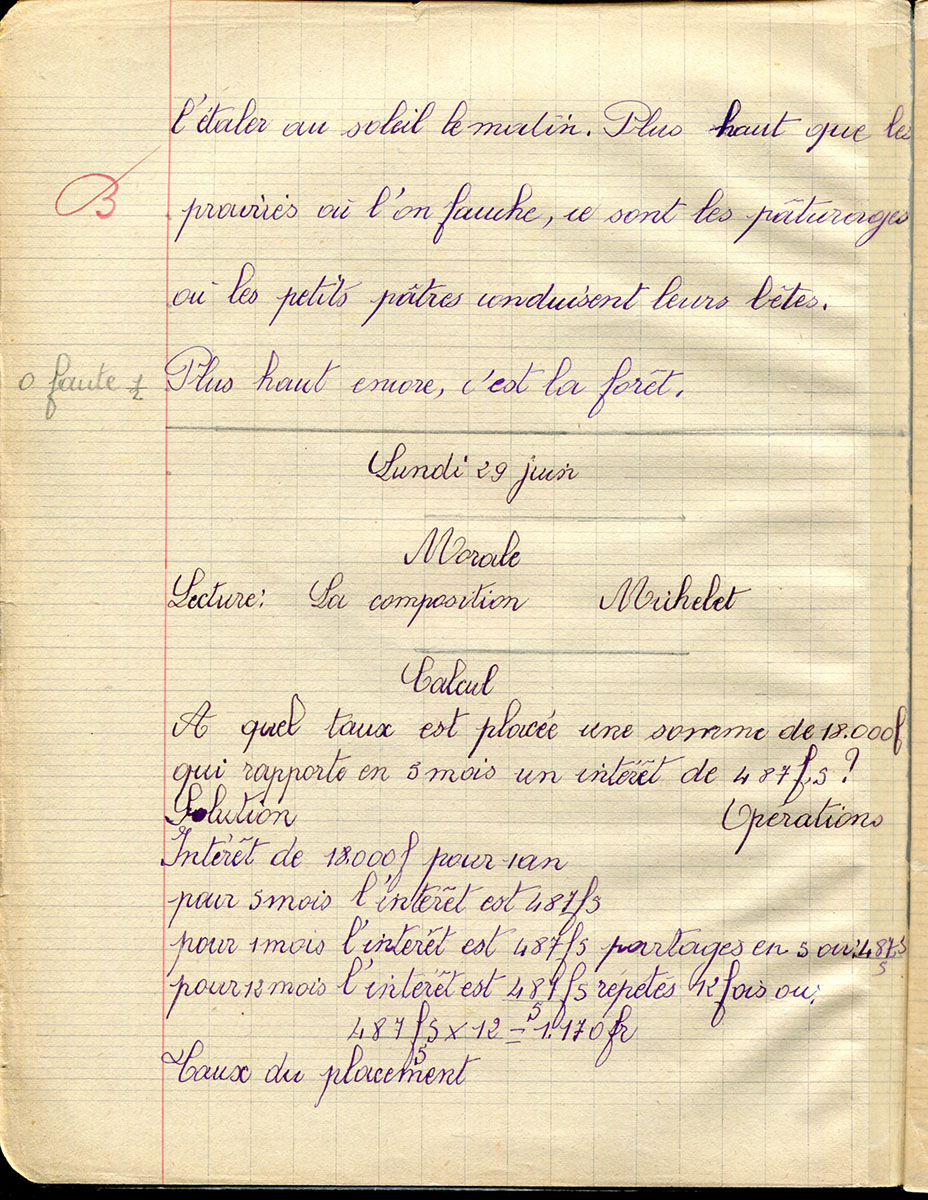 l'étaler au soleil le matin. Plus haut que les
B
prairies où l'on fauche, ce sont les pâturages
où les petits pâtres conduisent leurs bêtes.
0 faute ½
Plus haut encore, c'est la forêt.
Lundi 29 juin
Morale
Lecture: La composition Michelet
Calcul
A quel taux est placée une somme de 18.000f
qui rapporte en 5 mois un intérêt de 487f,5?
Solution Opérations
Intérêt de 18.000f pour 1an
pour 5 mois l'intérêt est 487f5
pour 1 mois l'intérêt est 487f5 partagés en 5 ou: 487,5/5
pour 12 mois l'intérêt est 487f5/5 répétés 12 fois ou:
487f5 x 12/5 = 1.170fr
Taux du placement